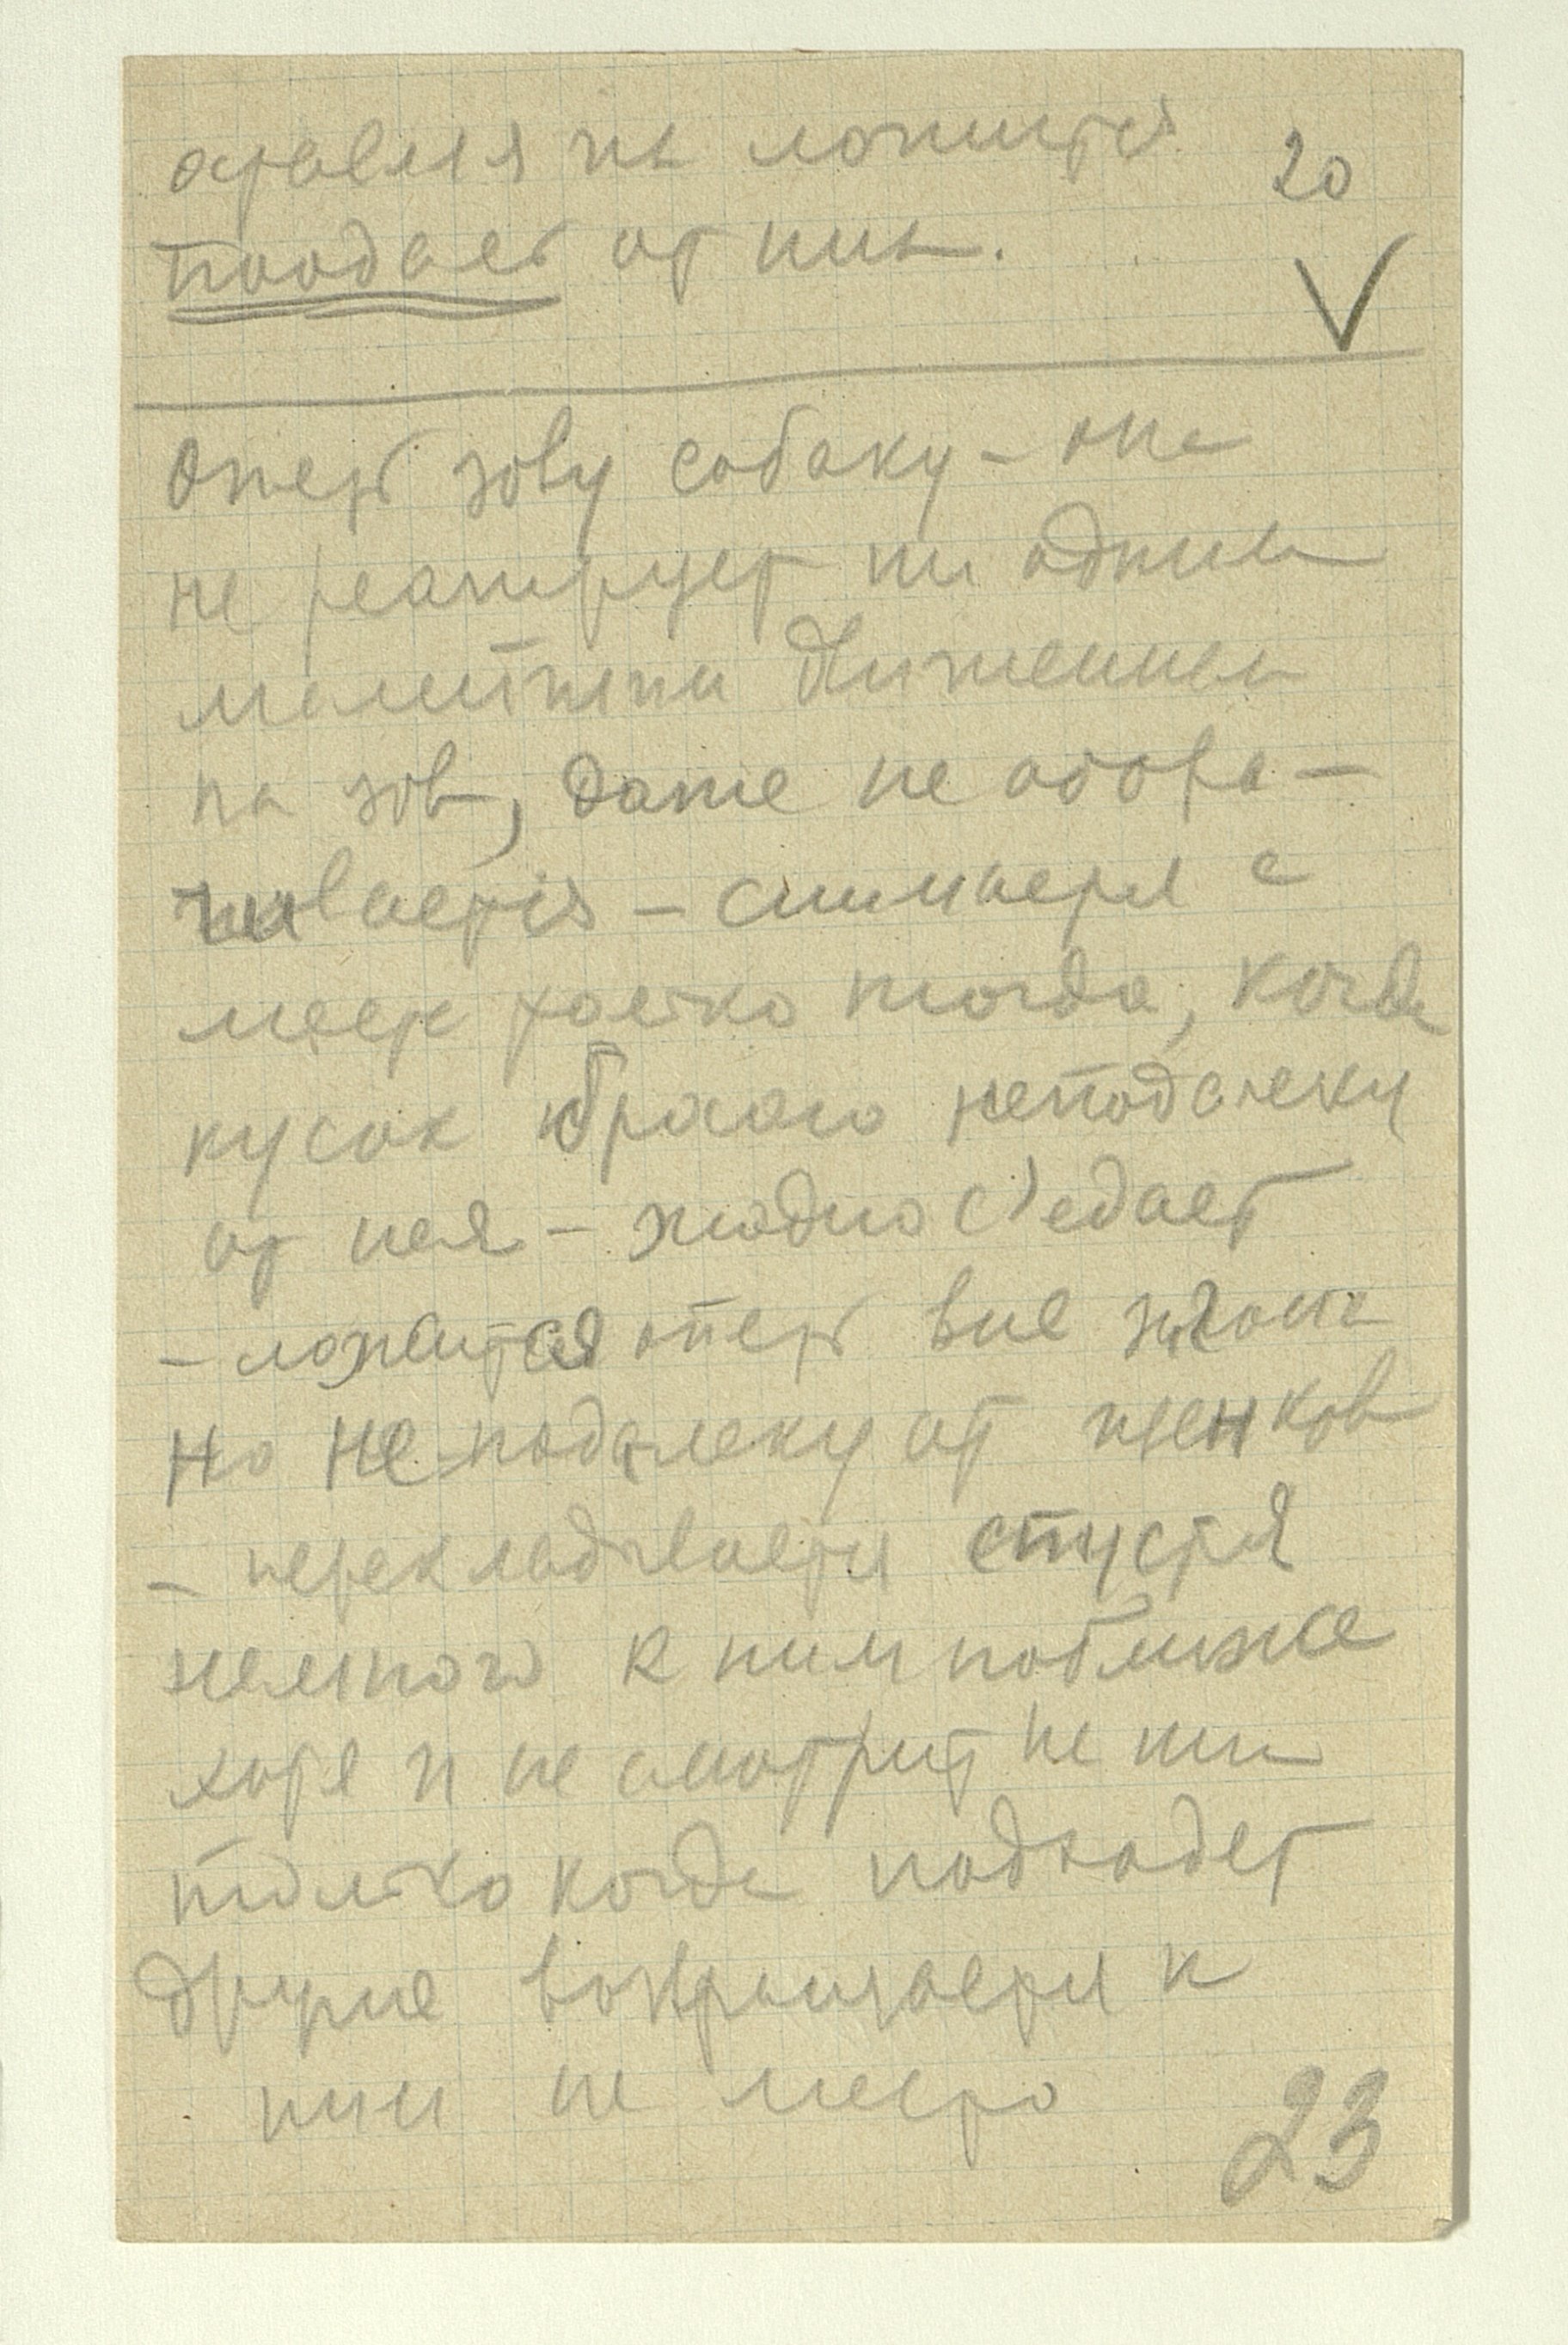 оставляя их ложится 20
поодаль от них. V
Опять зову собаку – она
не реагирует ни одним
малейшим движением
на зов, даже не обора-
чивается – снимается с
места только тогда, когда
кусок бросаю неподалеку
от нея – жадно с'едает
– ложится опять вне
но неподалеку от щенков
– перекладывается спустя
немного к ним поближе
хотя и не смотрит на них
только когда подходят
другие возвращается к
ним на место
23